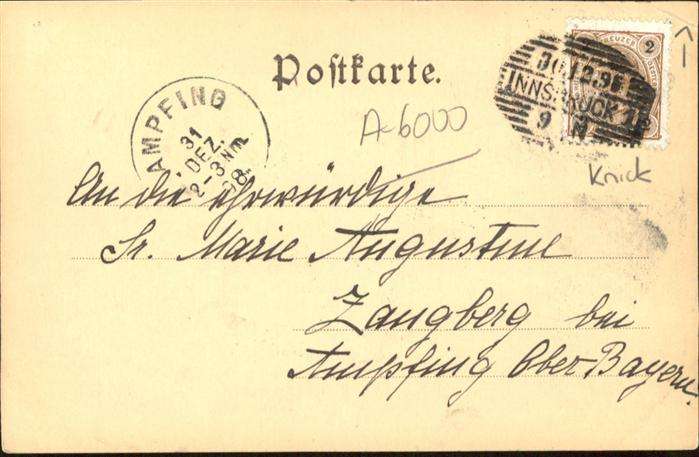 Postkarte.
KREUZER
2
30.12.98
INNSBRUCK 1
9 N
AMPFING
31
DEZ.
2-3 NM.
98
A-6000
Knick
An die ehrwürdige
Sr. Marie Augustine
Zangberg bei
Ampfing Ober-Bayern.